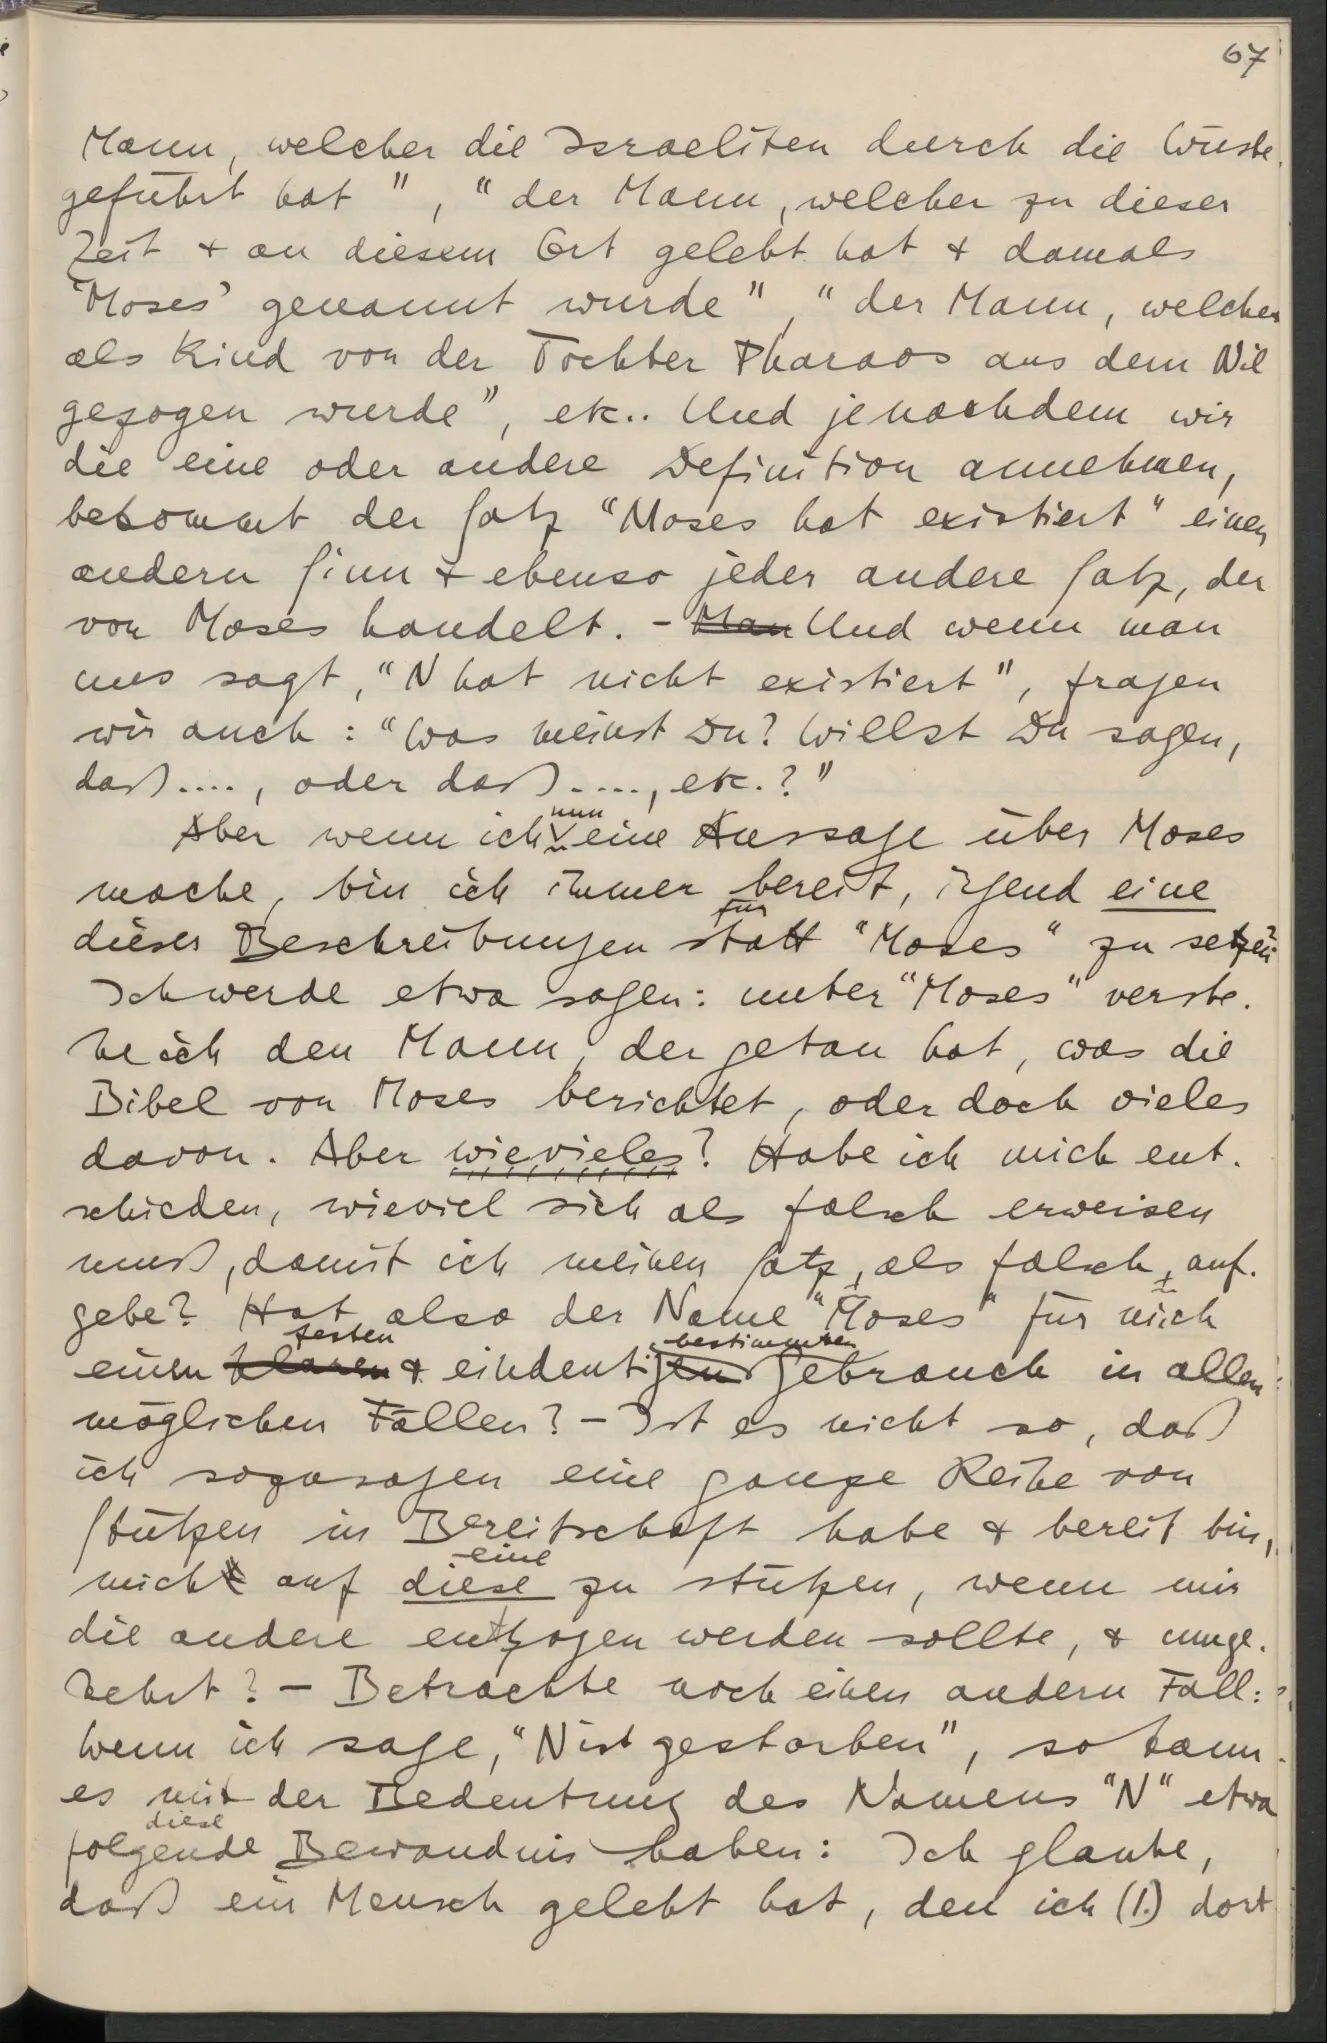 67
Mann, welcher die Israeliten durch die Wüste
geführt hat", "der Mann, welcher zu dieser
Zeit + an diesem Ort gelebt hat + damals
'Moses' genannt wurde", "der Mann, welcher
als Kind von der Tochter Pharaos aus dem Nil
gezogen wurde", etc.. Und jenachdem wir
die eine oder andere Definition annehmen,
bekommt der Satz "Moses hat existiert" einen
andern Sinn + ebenso jeder andere Satz, der
von Moses handelt. – Man Und wenn man
uns sagt, "N hat nicht existiert", fragen
wir auch: "Was meinst Du? Willst Du sagen,
daß...., oder daß....., etc.?"
nun
Aber wenn ich eine Aussage über Moses
mache, bin ich immer bereit, irgend eine
für
dieser Beschreibungen statt "Moses" zu setzen?
Ich werde etwa sagen: unter "Moses" verste-
he ich den Mann, der getan hat, was die
Bibel von Moses berichtet, oder doch vieles
davon. Aber wievieles? Habe ich mich ent-
schieden, wieviel sich als falsch erweisen
muß, damit ich meinen Satz, als falsch, auf-
gebe? Hat also der Name "Moses" für mich
festen bestimmten
einen klaren + eindeutigen Gebrauch in allen
möglichen Fällen? – Ist es nicht so, daß
ich sozusagen eine ganze Reihe von
Stützen in Bereitschaft habe + bereit bin,
eine
mich auf diese zu stützen, wenn mir
die andere entzogen werden sollte, + umge-
kehrt? – Betrachte noch einen andern Fall:
Wenn ich sage, "N ist gestorben", so kann
es mit der Bedeutung des Namens "N" etwa
diese
folgende Bewandnis haben: Ich glaube,
daß ein Mensch gelebt hat, den ich (1.) dort